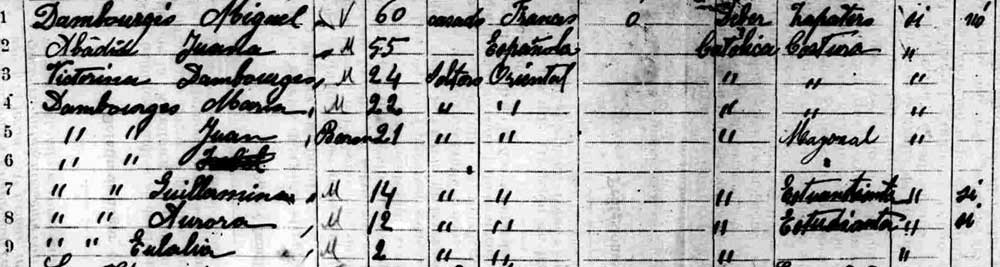 1 Dambourgés Miguel V 60 casado Frances 0 Liber Zapatero si no
2 Abadie Juana „ M 55 Española Católica Costura "
3 Victorina Dambourges, M 24 Soltera Oriental " " "
4 Dambourges Maria, M 22 " " " " "
5 " " Juan , Baron 21 " " " "
6 " "
7 " " Guillermina, M 14 " " " "  si
8 " " Aurora , M 12 " " " Estudianta " si
9 " " Eulalia , M 2 " " " "